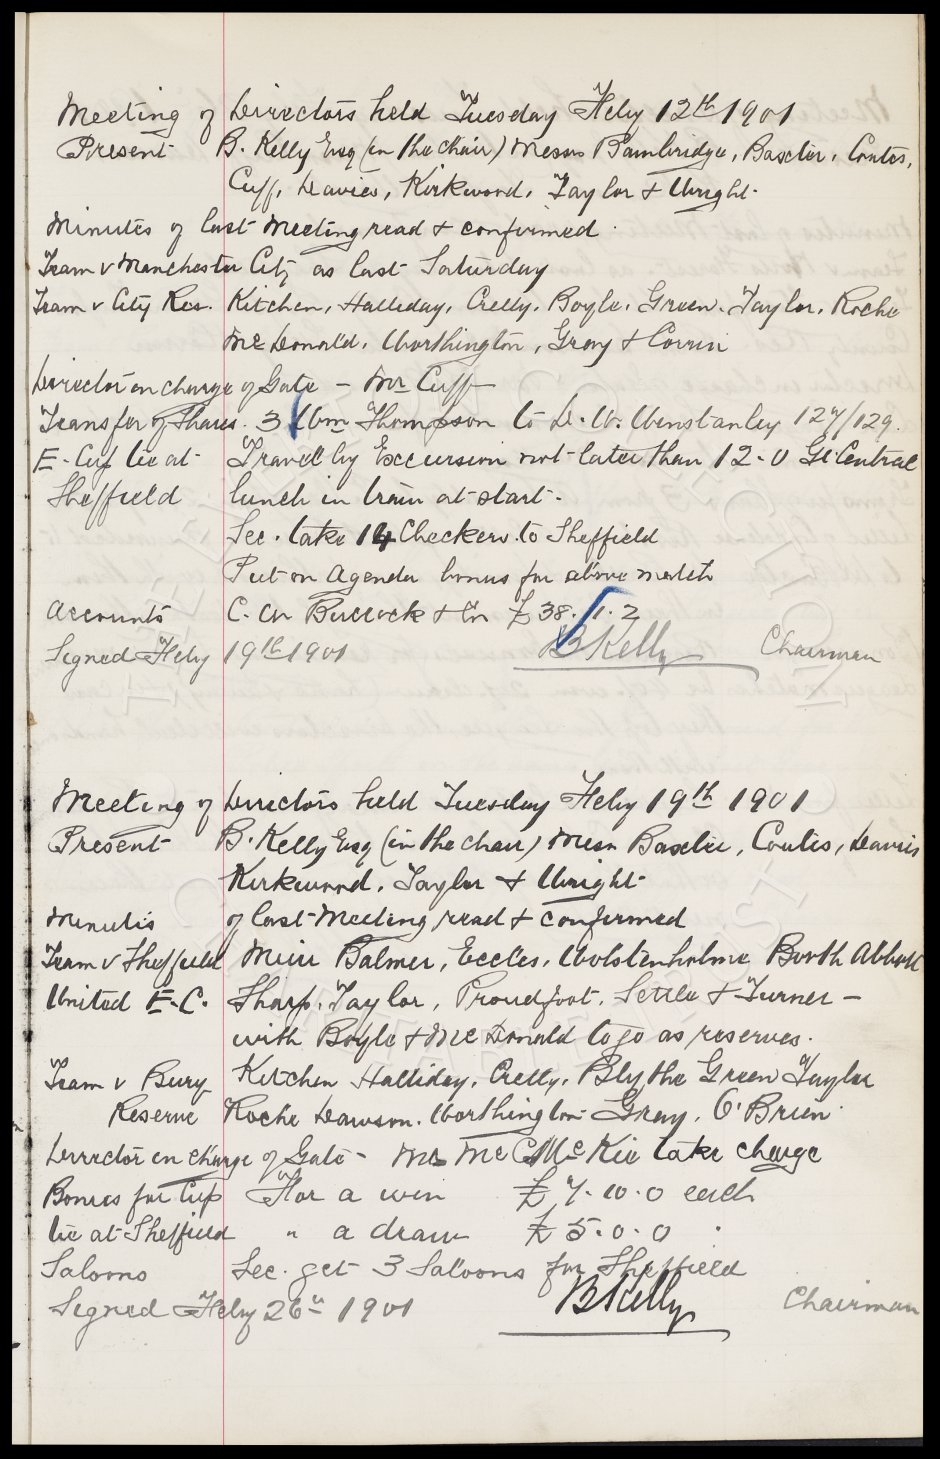 Meeting of Directors held Tuesday Feby 12th 1901
Present B. Kelly Esq (in the chair) Messrs Bainbridge, Baxter, Coates,
Cuff, Davies, Kirkwood, Taylor & Wright.
Minutes of last Meeting read & confirmed.
Team v Manchester City as last Saturday
Team v City Res. Kitchen, Halliday, Crelly, Boyle, Green, Taylor, Roche
McDonald, Worthington, Gray & Corrin
Director in charge of Gate - Mr Cuff
Transfer of Shares. 3 Wm Thompson to D. W. Winstanley 127/129.
E. Cup tie at Travel by Excursion not later than 12-0 Gt Central
Sheffield lunch in train at start.
Sec. take 14 Checkers to Sheffield
Put on Agenda bonus for above match
Accounts C. W Bullock & Co £38. 11. 2
Signed Feby 19th 1901 B Kelly Chairman
Meeting of Directors held Tuesday Feby 19th 1901
Present B. Kelly Esq (in the chair) Messrs Baxter, Coates, Davies
Kirkwood, Taylor & Wright
Minutes of last Meeting read & confirmed
Team v Sheffield Muir Balmer, Eccles, Wolstenholme Booth Abbott
United E. C. Sharp, Taylor, Proudfoot, Settle & Turner -
with Boyle & McDonald to go as reserves.
Team v Bury Kitchen Halliday, Crelly, Blythe Green Taylor
Reserve Roche Dawson, Worthington Gray, O'Brien.
Director in charge of Gate - Mr Mc Kie take charge
Bonus for Cup For a win £7. 10. 0 each
tie at Sheffield " a draw £5. 0. 0 "
Saloons Sec. get 3 Saloons for Sheffield
Signed Feby 26th 1901 B Kelly Chairman